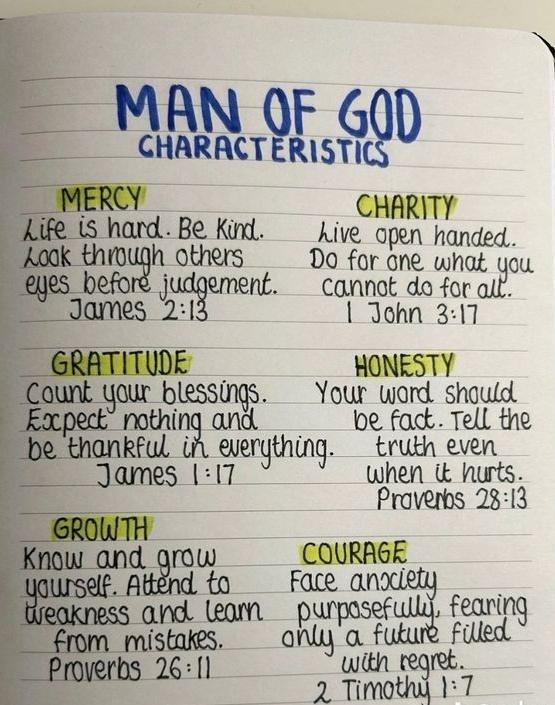 MAN OF GOD
CHARACTERISTICS
MERCY
Life is hard. Be Kind.
Look through others
eyes before judgement.
James 2:13
CHARITY
Live open handed.
Do for one what you
cannot do for all.
1 John 3:17
GRATITUDE
Count your blessings.
Expect nothing and
be thankful in everything.
James 1:17
HONESTY
Your word should
be fact. Tell the
truth even
when it hurts.
Proverbs 28:13
GROWTH
Know and grow
yourself. Attend to
weakness and learn
from mistakes.
Proverbs 26:11
COURAGE
Face anxiety
purposefully, fearing
only a future filled
with regret.
2 Timothy 1:7